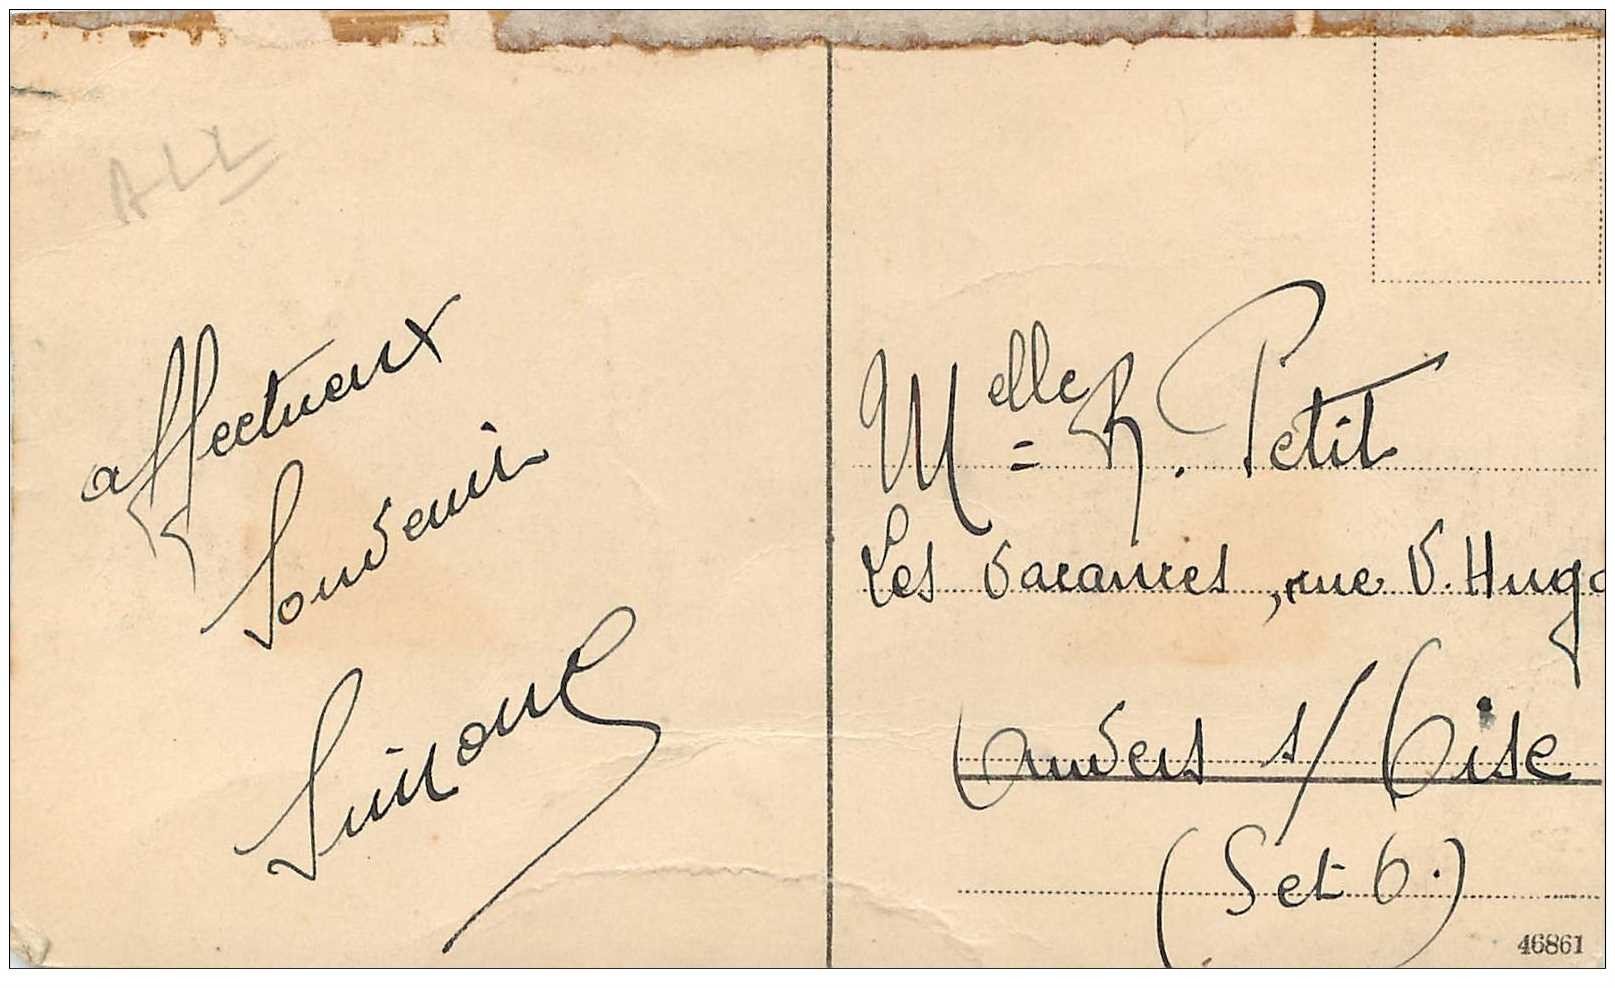 ALL
affectueux
Souvenir
Simone
Melle R. Petit
Les Vacances, rue V. Hugo
Auvers s/ Oise
(Set O.)
46861